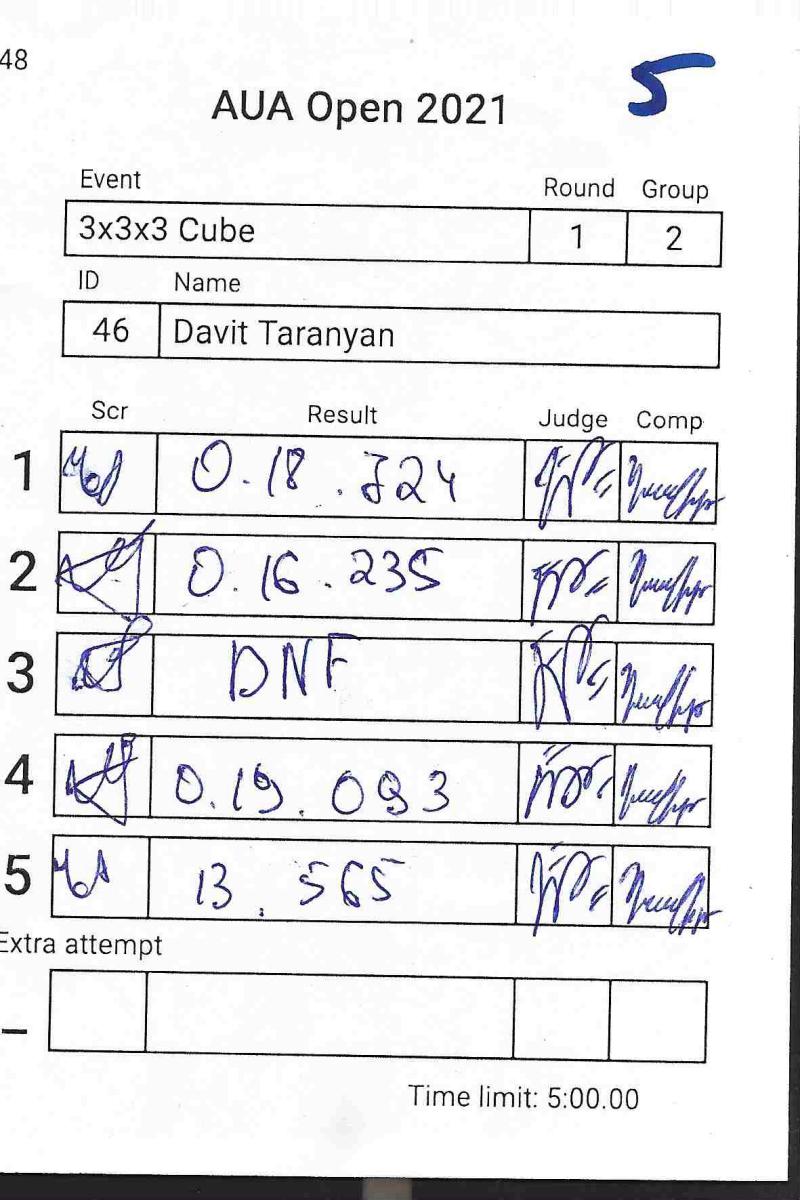 48
5
AUA Open 2021
Event Round Group
3x3x3 Cube 1 2
ID Name
46 Davit Taranyan
Scr Result Judge Comp
1 0.18.724
2 0.16.235
3 DNF
4 0.19.093
5 13.565
Extra attempt
–
Time limit: 5:00.00